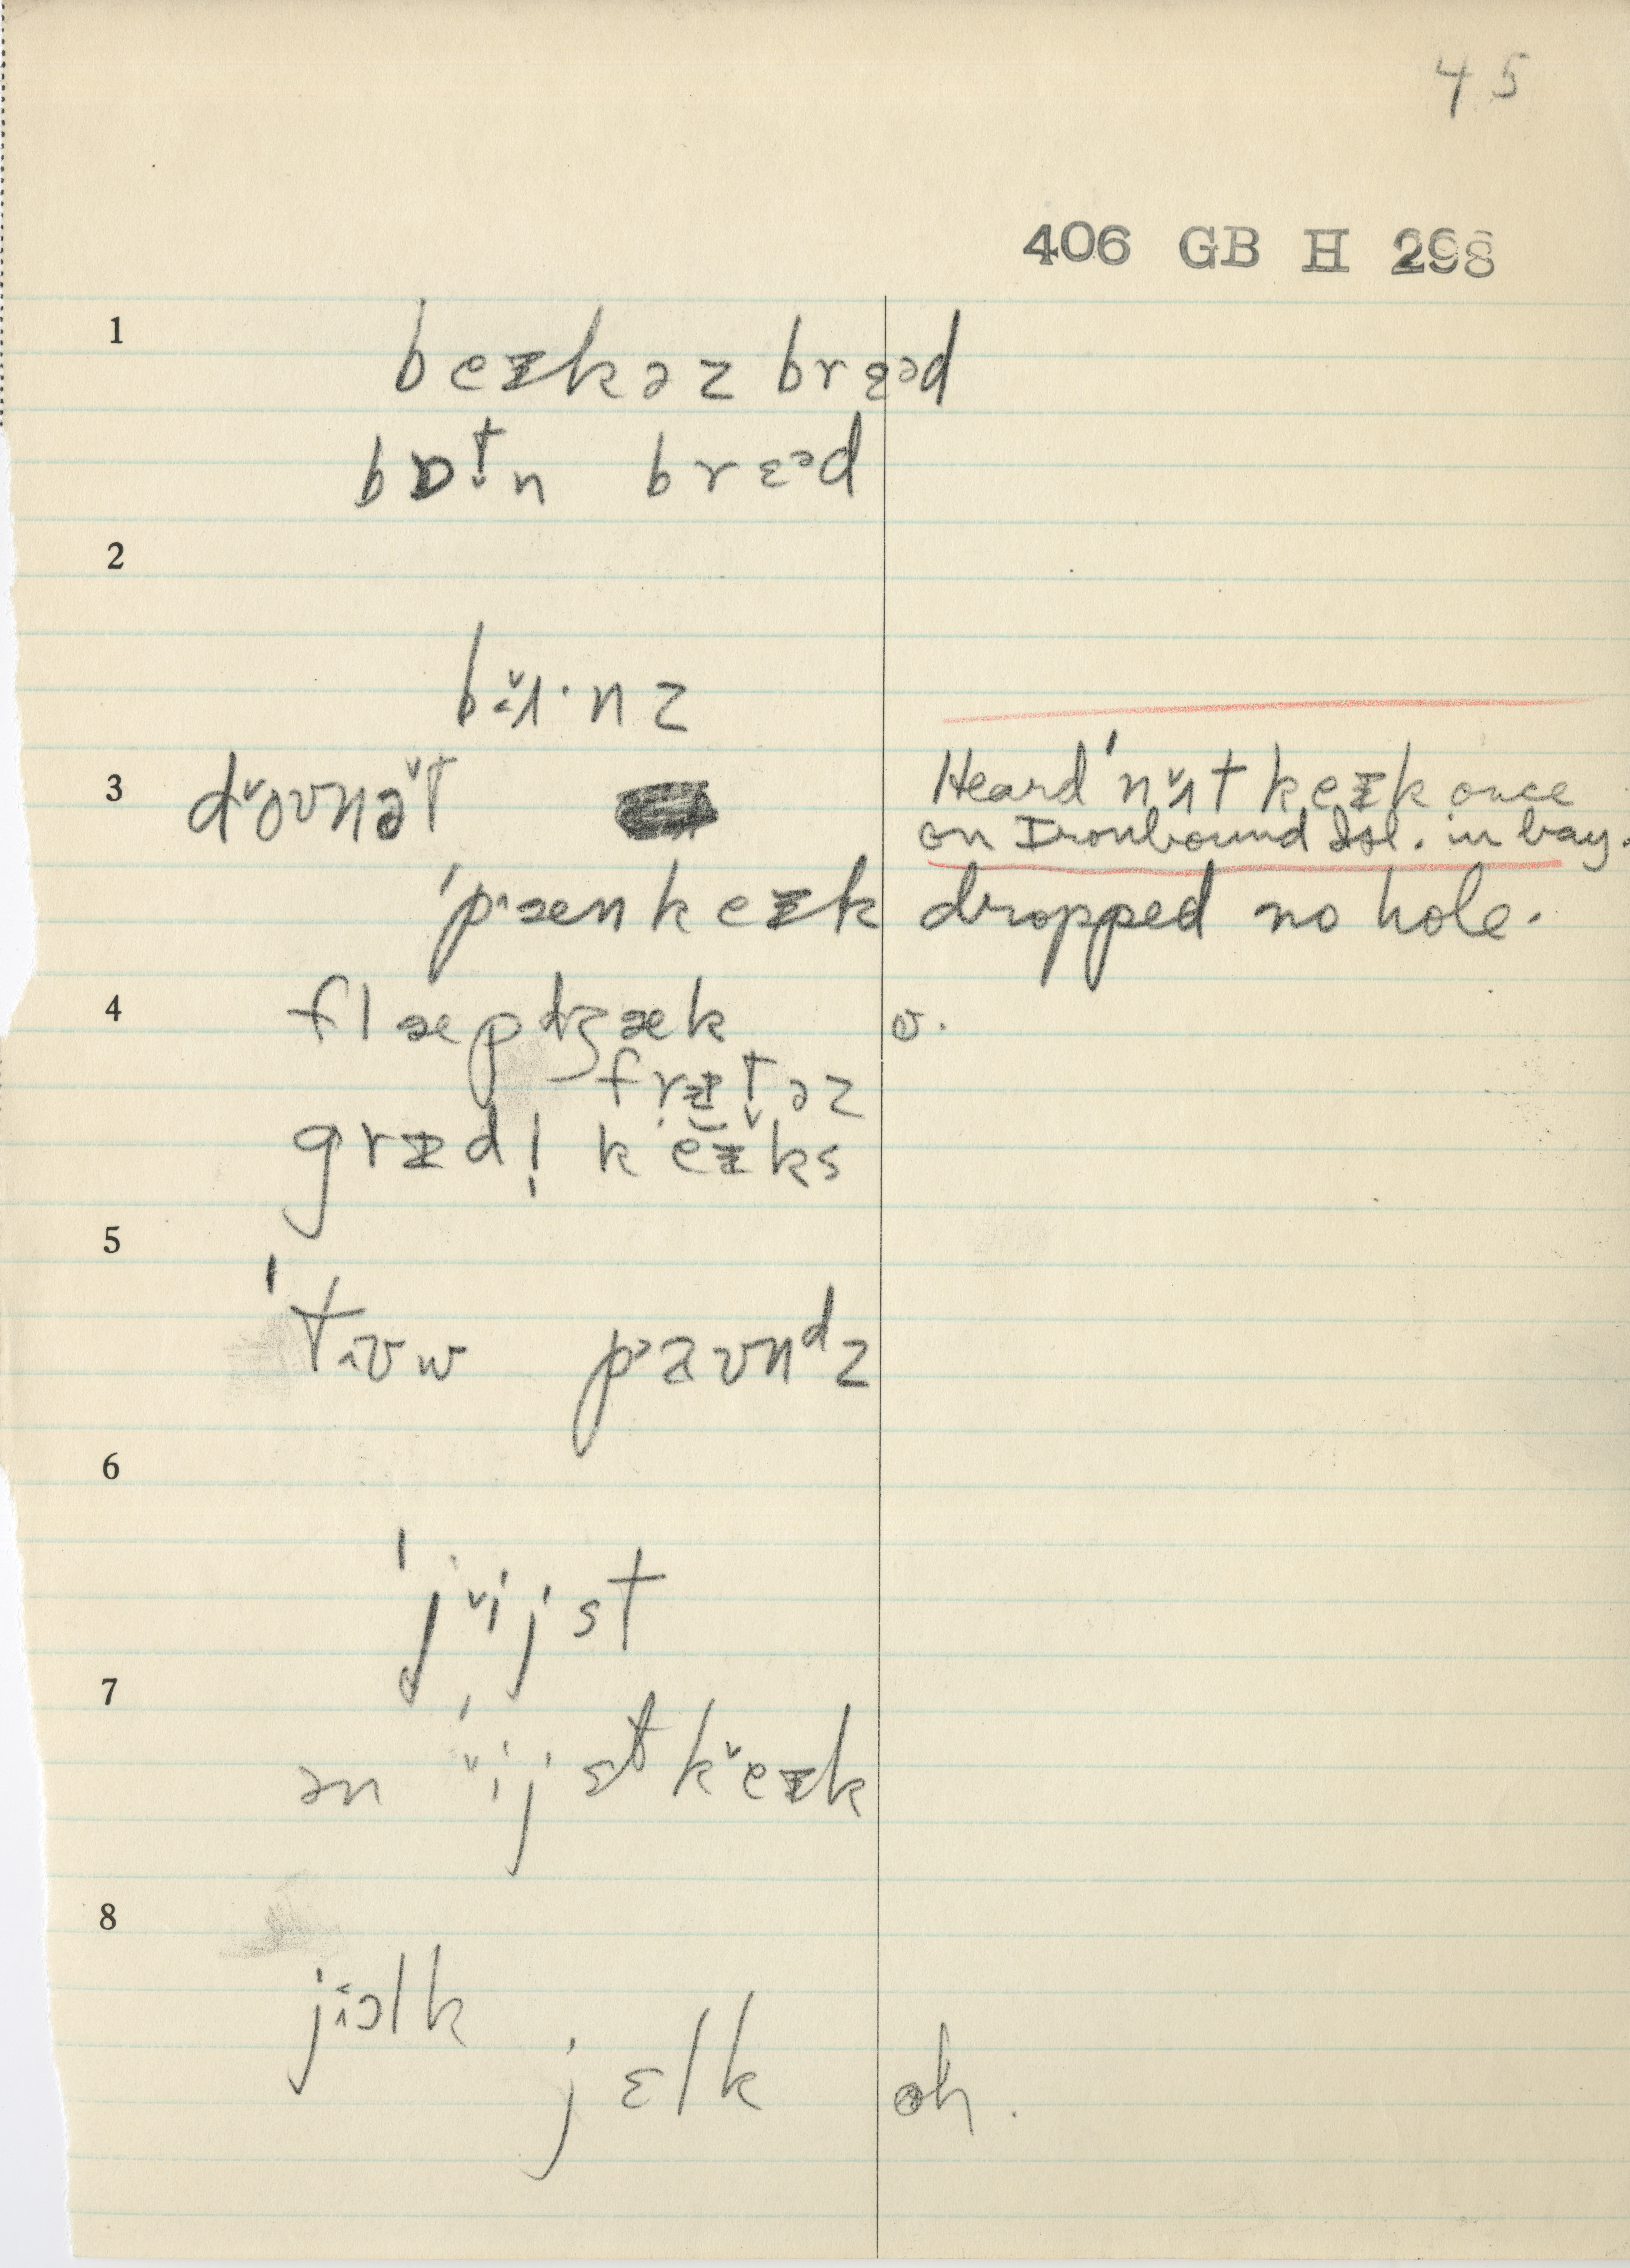 45
406 GB H 298
1
beɪkəz brɛəd
bɒt̬n brɛəd
2
bʌ̌ɪ·nz
3
dˇoʊnət
Heard 'nʌ̌t keɪk once
on Ironbound Isl. in bay.
'pˈæn keɪk
dropped no hole.
4
flæpdʒæk
v.
frɪt̬əz
grɪdl̩ keɪks
5
'tɪʊw pˈaʊnᵈz
6
'jˇijst
7
ən 'ˇijst kˇeɪk
8
jɪəlk
jɛlk
oh.